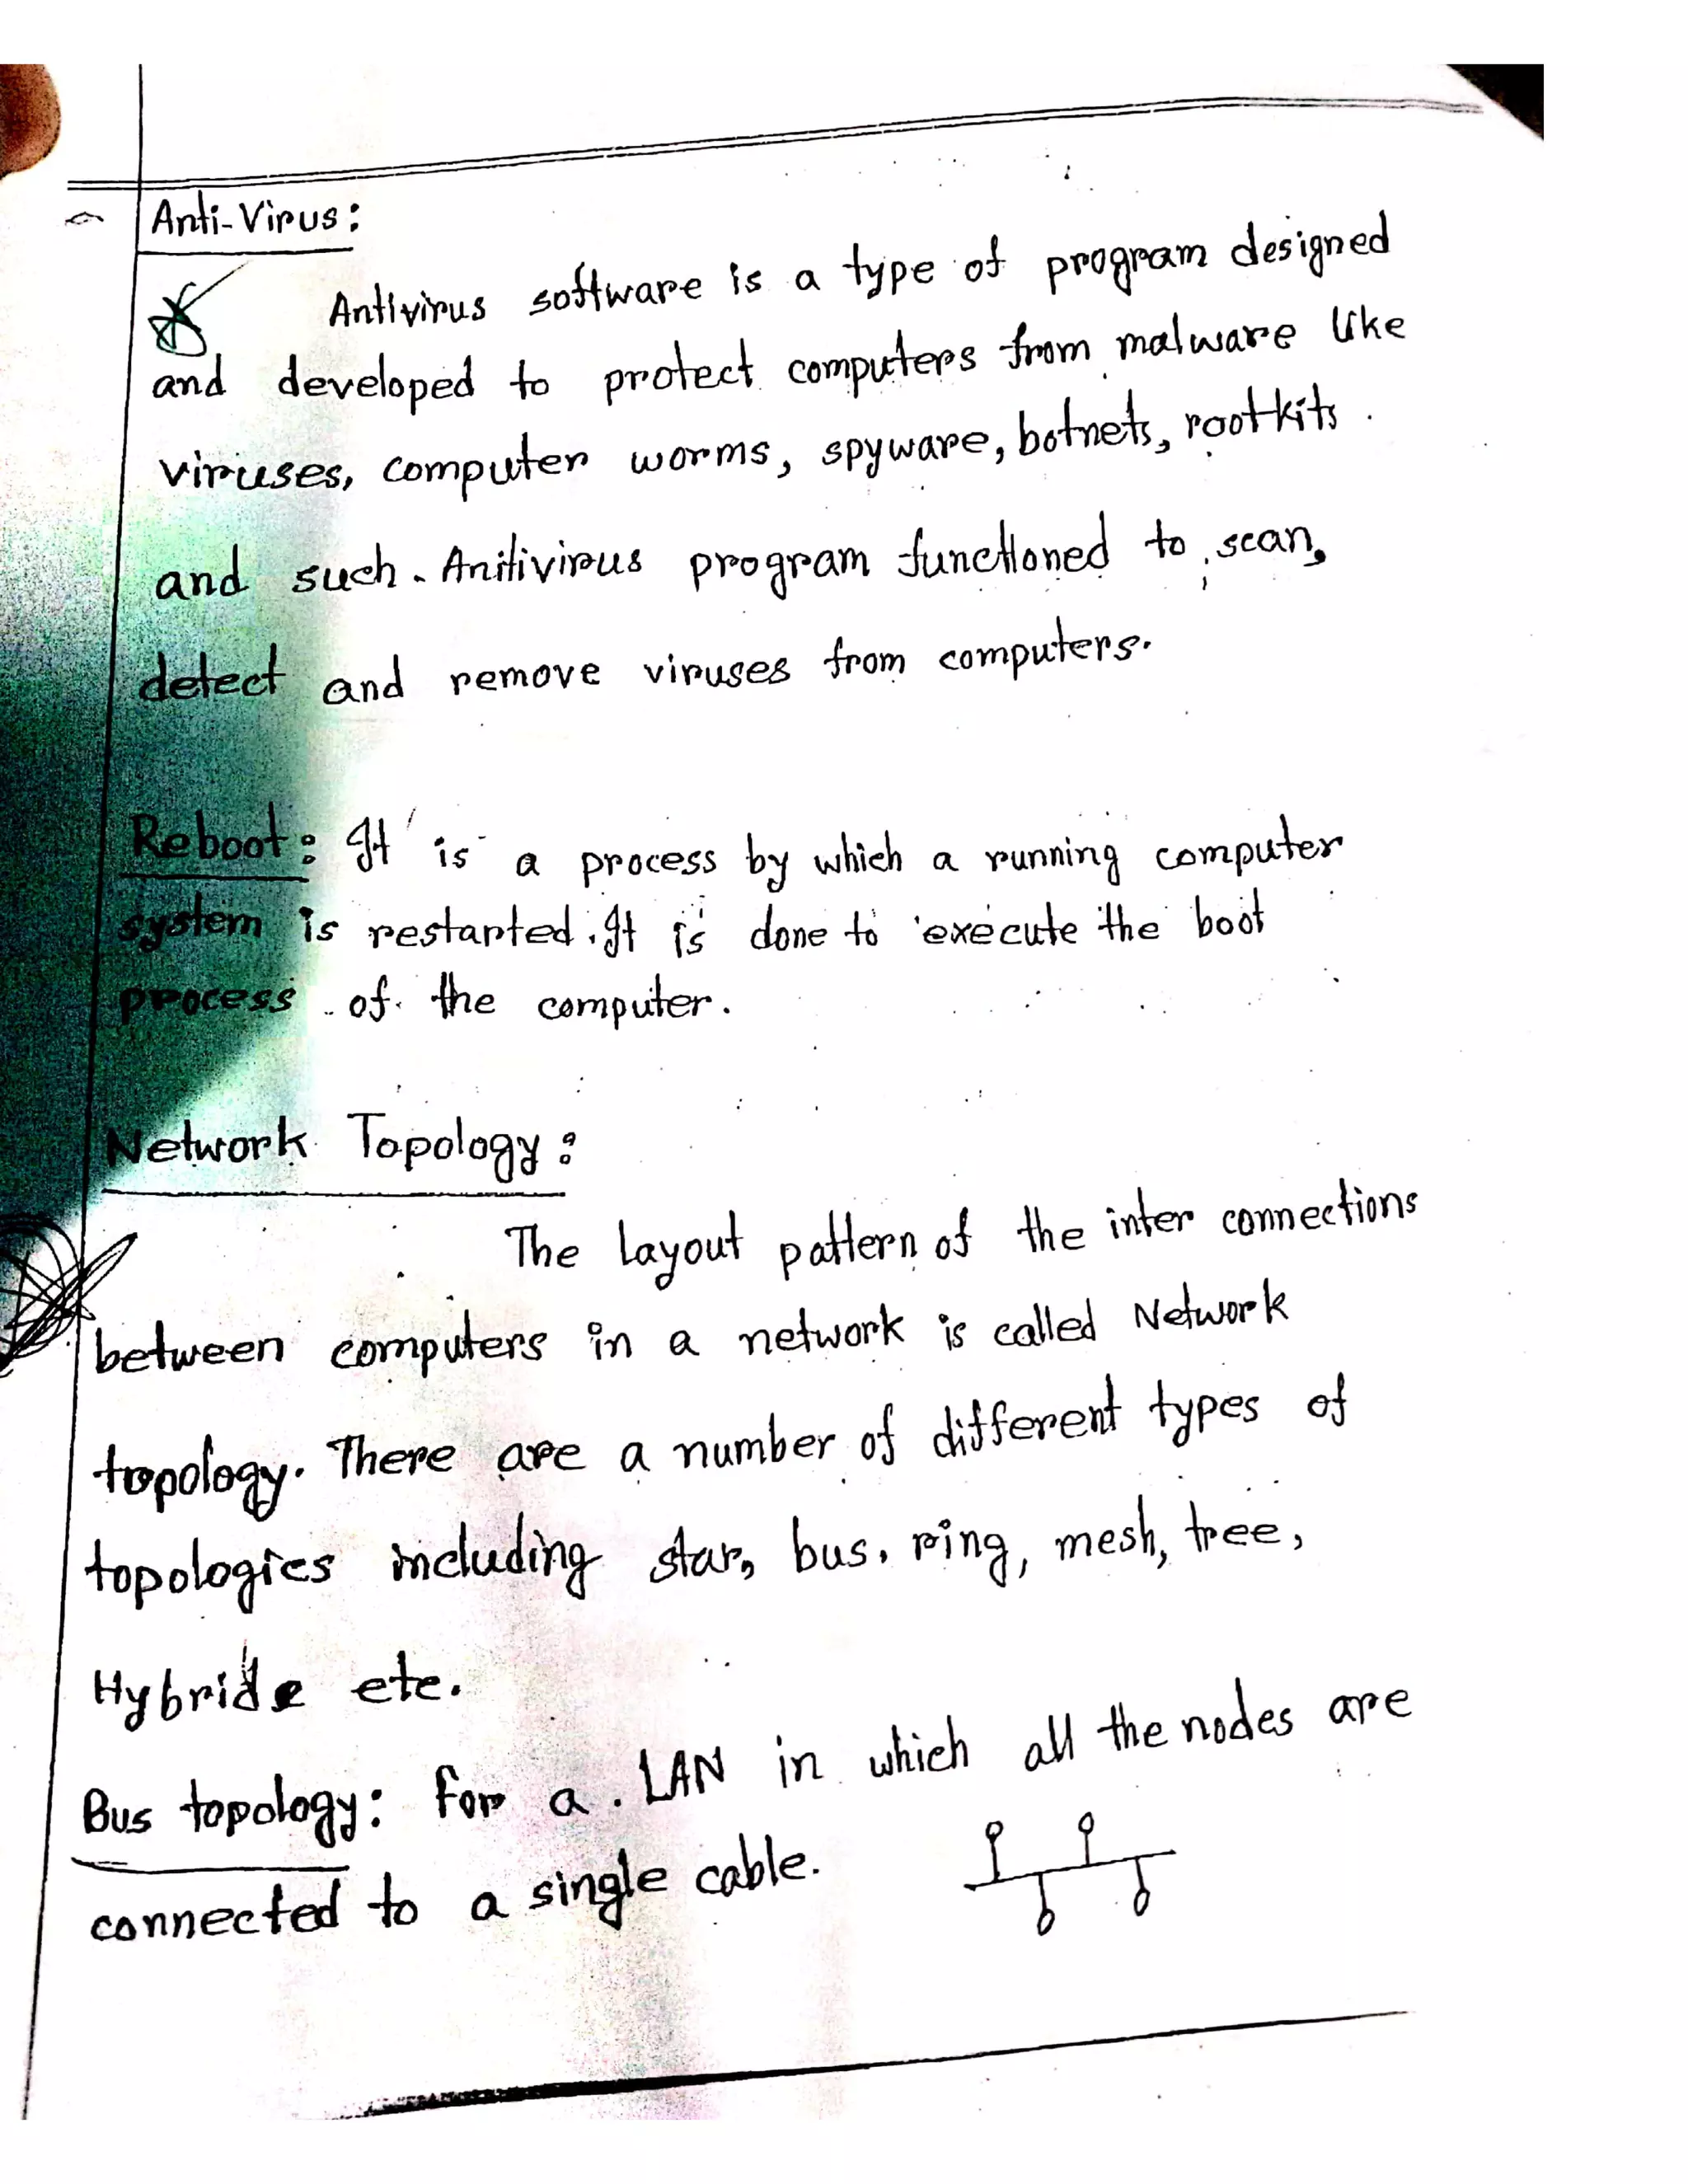 Anti-Virus:
Antivirus software is a type of program designed
and developed to protect computers from malware like
viruses, computer worms, spyware, botnets, rootkits
and such. Anitivirus program functioned to scan,
detect and remove viruses from computers.
Reboot: It is a process by which a running computer
system is restarted. It is done to execute the boot
process of the computer.
Network Topology:
The Layout pattern of the inter connections
between computers in a network is called Network
topology. There are a number of different types of
topologies including star, bus, ring, mesh, tree,
Hybride etc.
Bus topology: For a LAN in which all the nodes are
connected to a single cable.